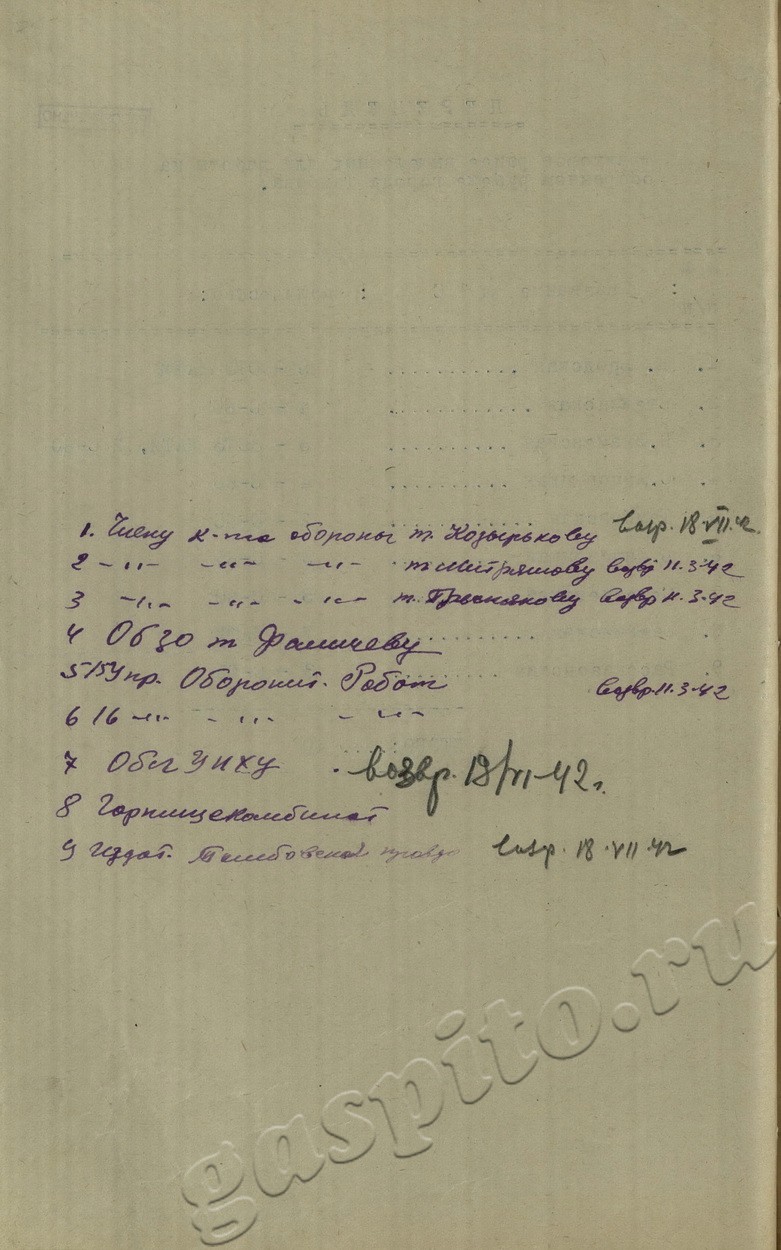 1. Члену к-та обороны т. Козырькову возвр. 18.VII.42.
2 -"- -"- -"- т. Митряшову возвр 11.3-42
3 -"- -"- -"- т. возвр 11.3-42
4 Обзо т Фаличеву
5 15 Упр. Оборонит. Работ возвр. 11.3-42
6 16 -"- -"- -"-
7 Обл УНХУ . возвр. 19/VI-42 г.
8 Горпищекомбинат
9 Издат. Тамбовская правда возвр. 18.VII.42
gaspito.ru